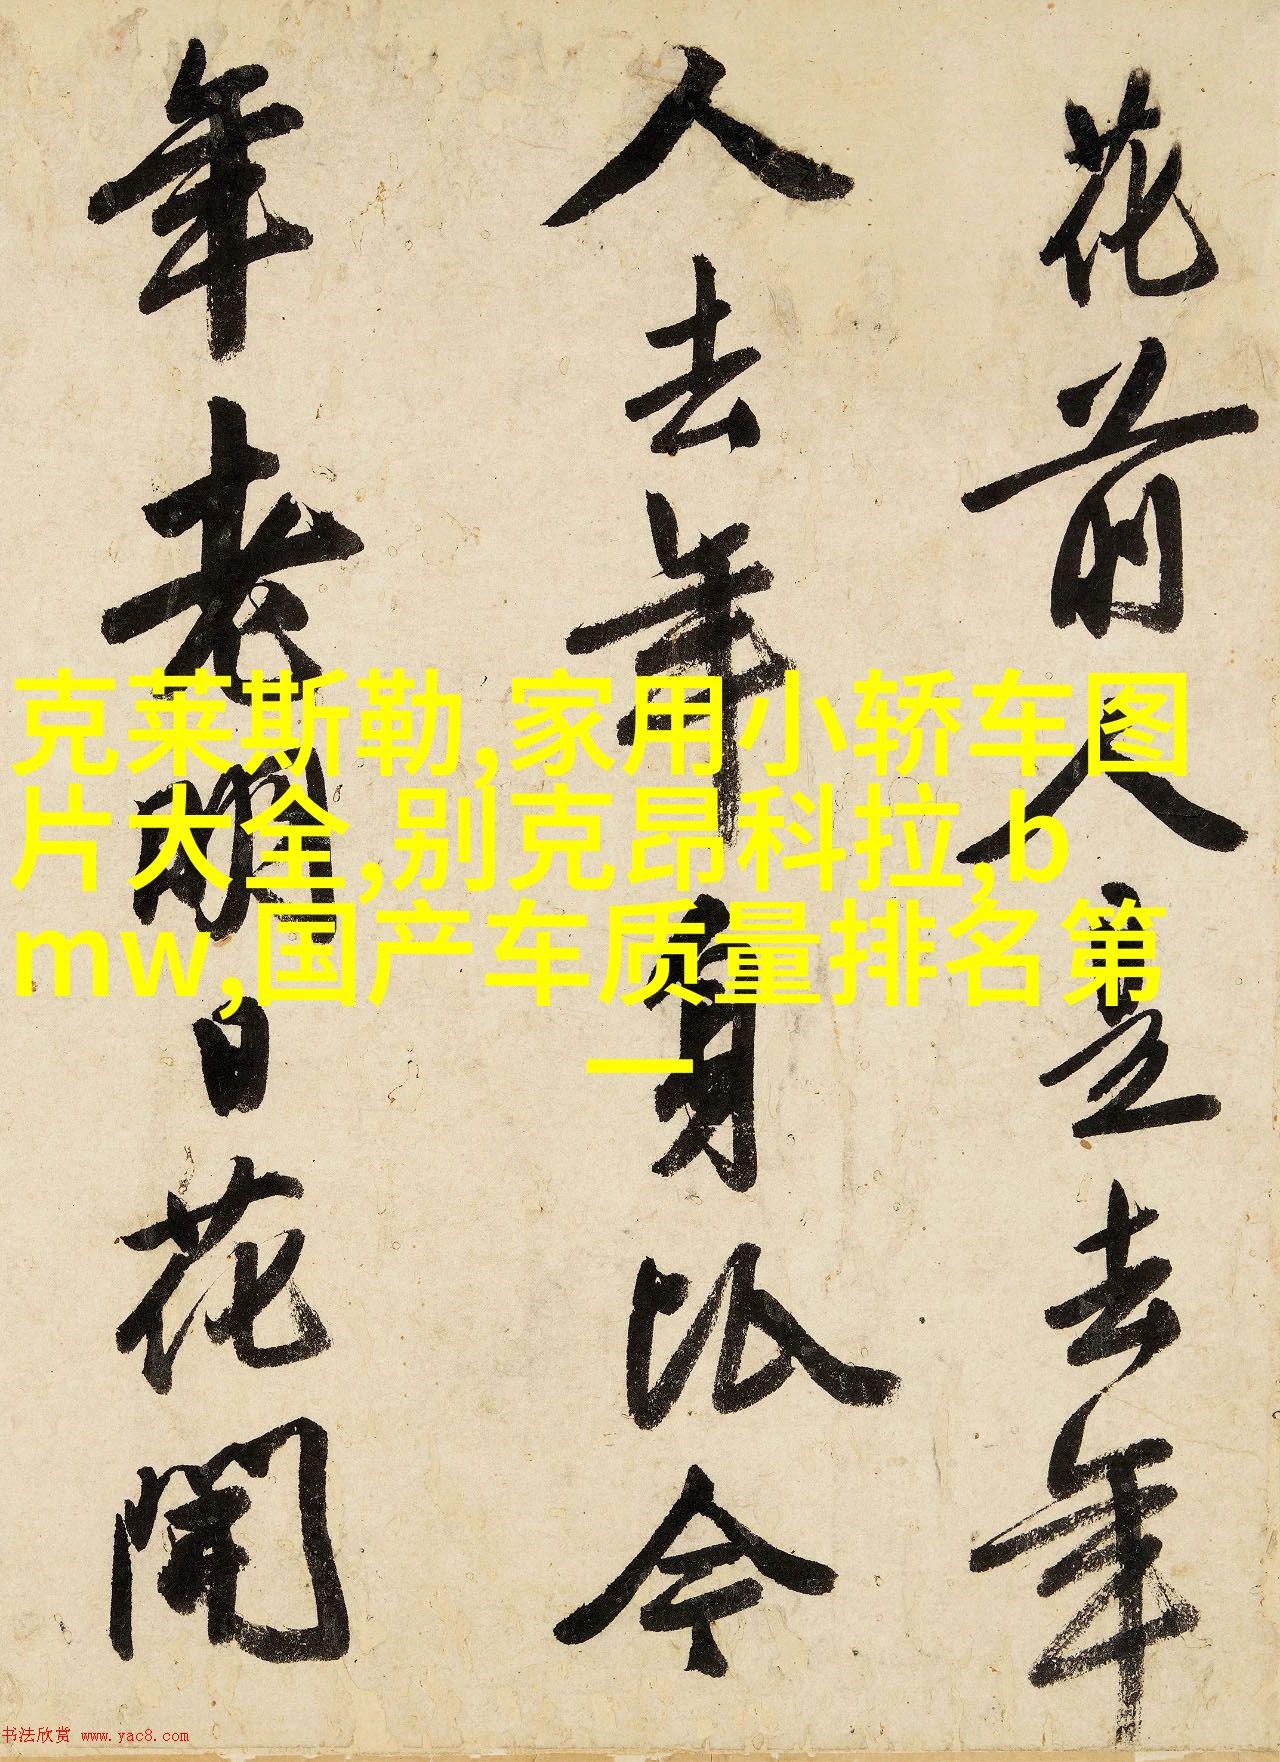 花前人是去年
人去年身比今
年老明日花開
克莱斯勒,家用小轿车图
片大全,别克昂科拉,b
mw,国产车质量排名第
一
书法欣赏 www.yac8.com